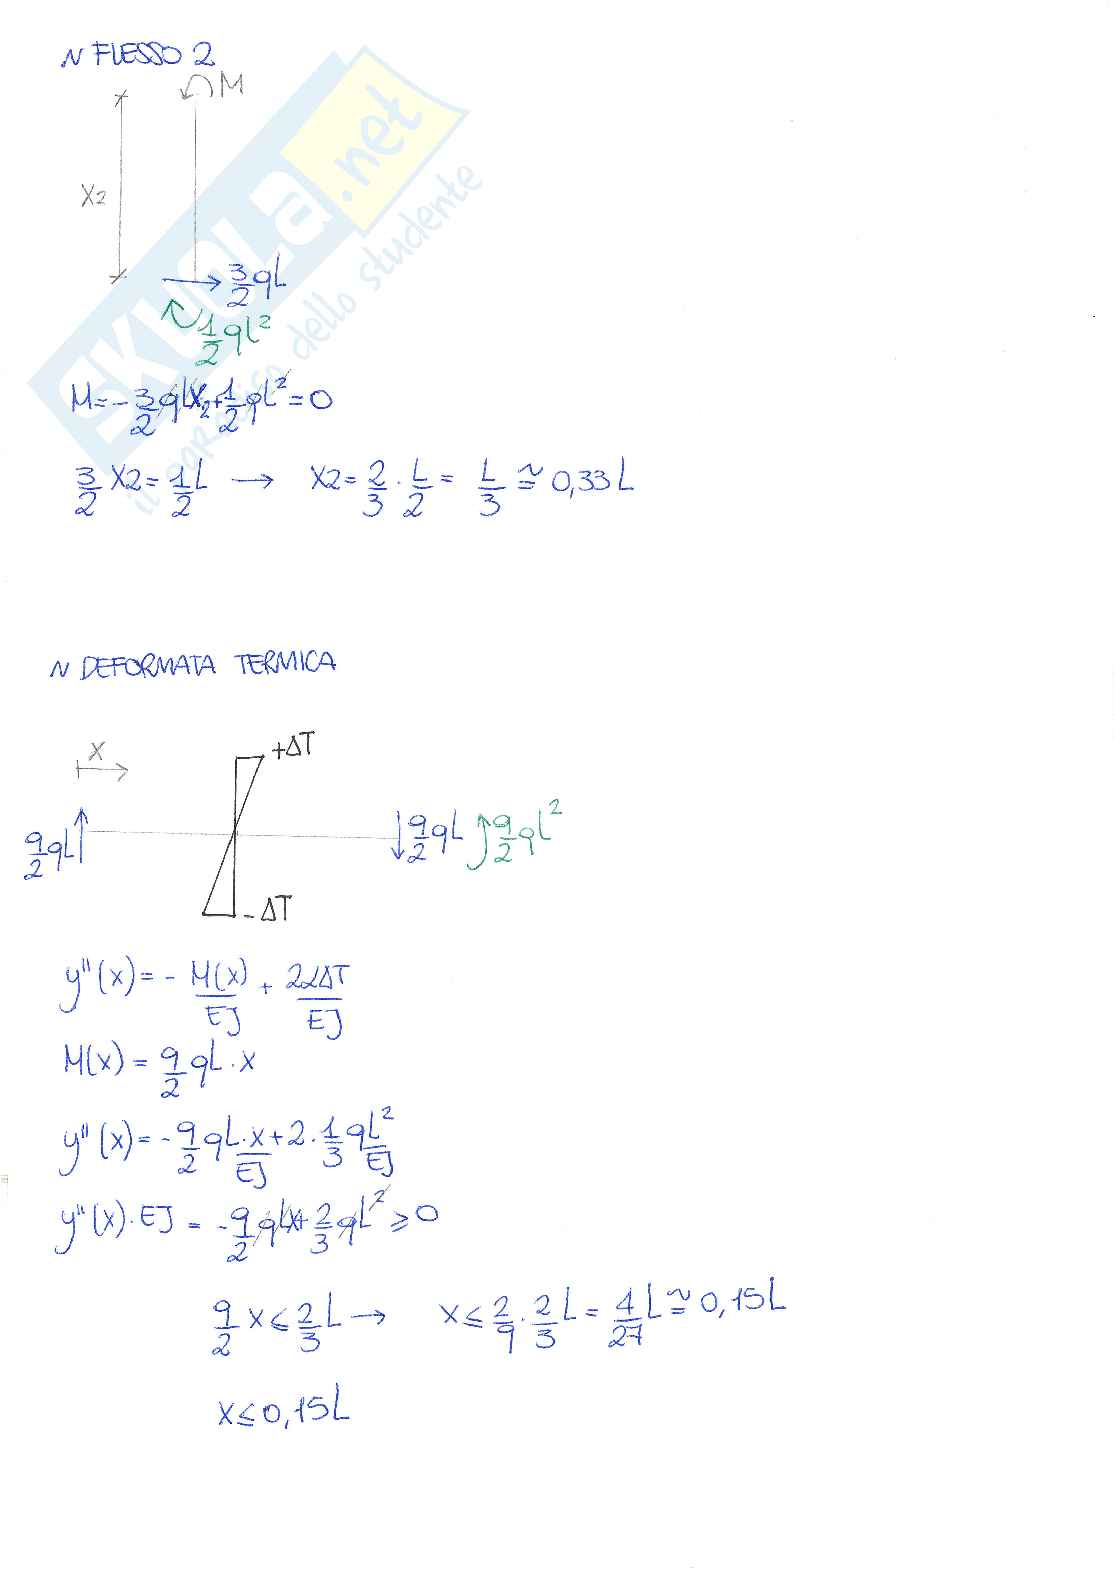 ~ FLESSO 2
M
X2
3/2 qL
1/2 qL²
M = -3/2 qLX2 + 1/2 qL² = 0
3/2 X2 = 1/2 L → X2 = 2/3 · L/2 = L/3 ≅ 0,33L
~ DEFORMATA TERMICA
X
+ΔT
9/2 qL
9/2 qL
9/2 qL²
-ΔT
y''(x) = - M(x)/EJ + 2αΔT/EJ
M(x) = 9/2 qL · x
y''(x) = - 9/2 qL · x/EJ + 2 · 1/3 qL²/EJ
y''(x) · EJ = - 9/2 qLx + 2/3 qL² ≥ 0
9/2 x ≤ 2/3 L → x ≤ 2/9 · 2/3 L = 4/27 L ≅ 0,15L
x ≤ 0,15L
SKUOLA.net
il paradiso dello studente